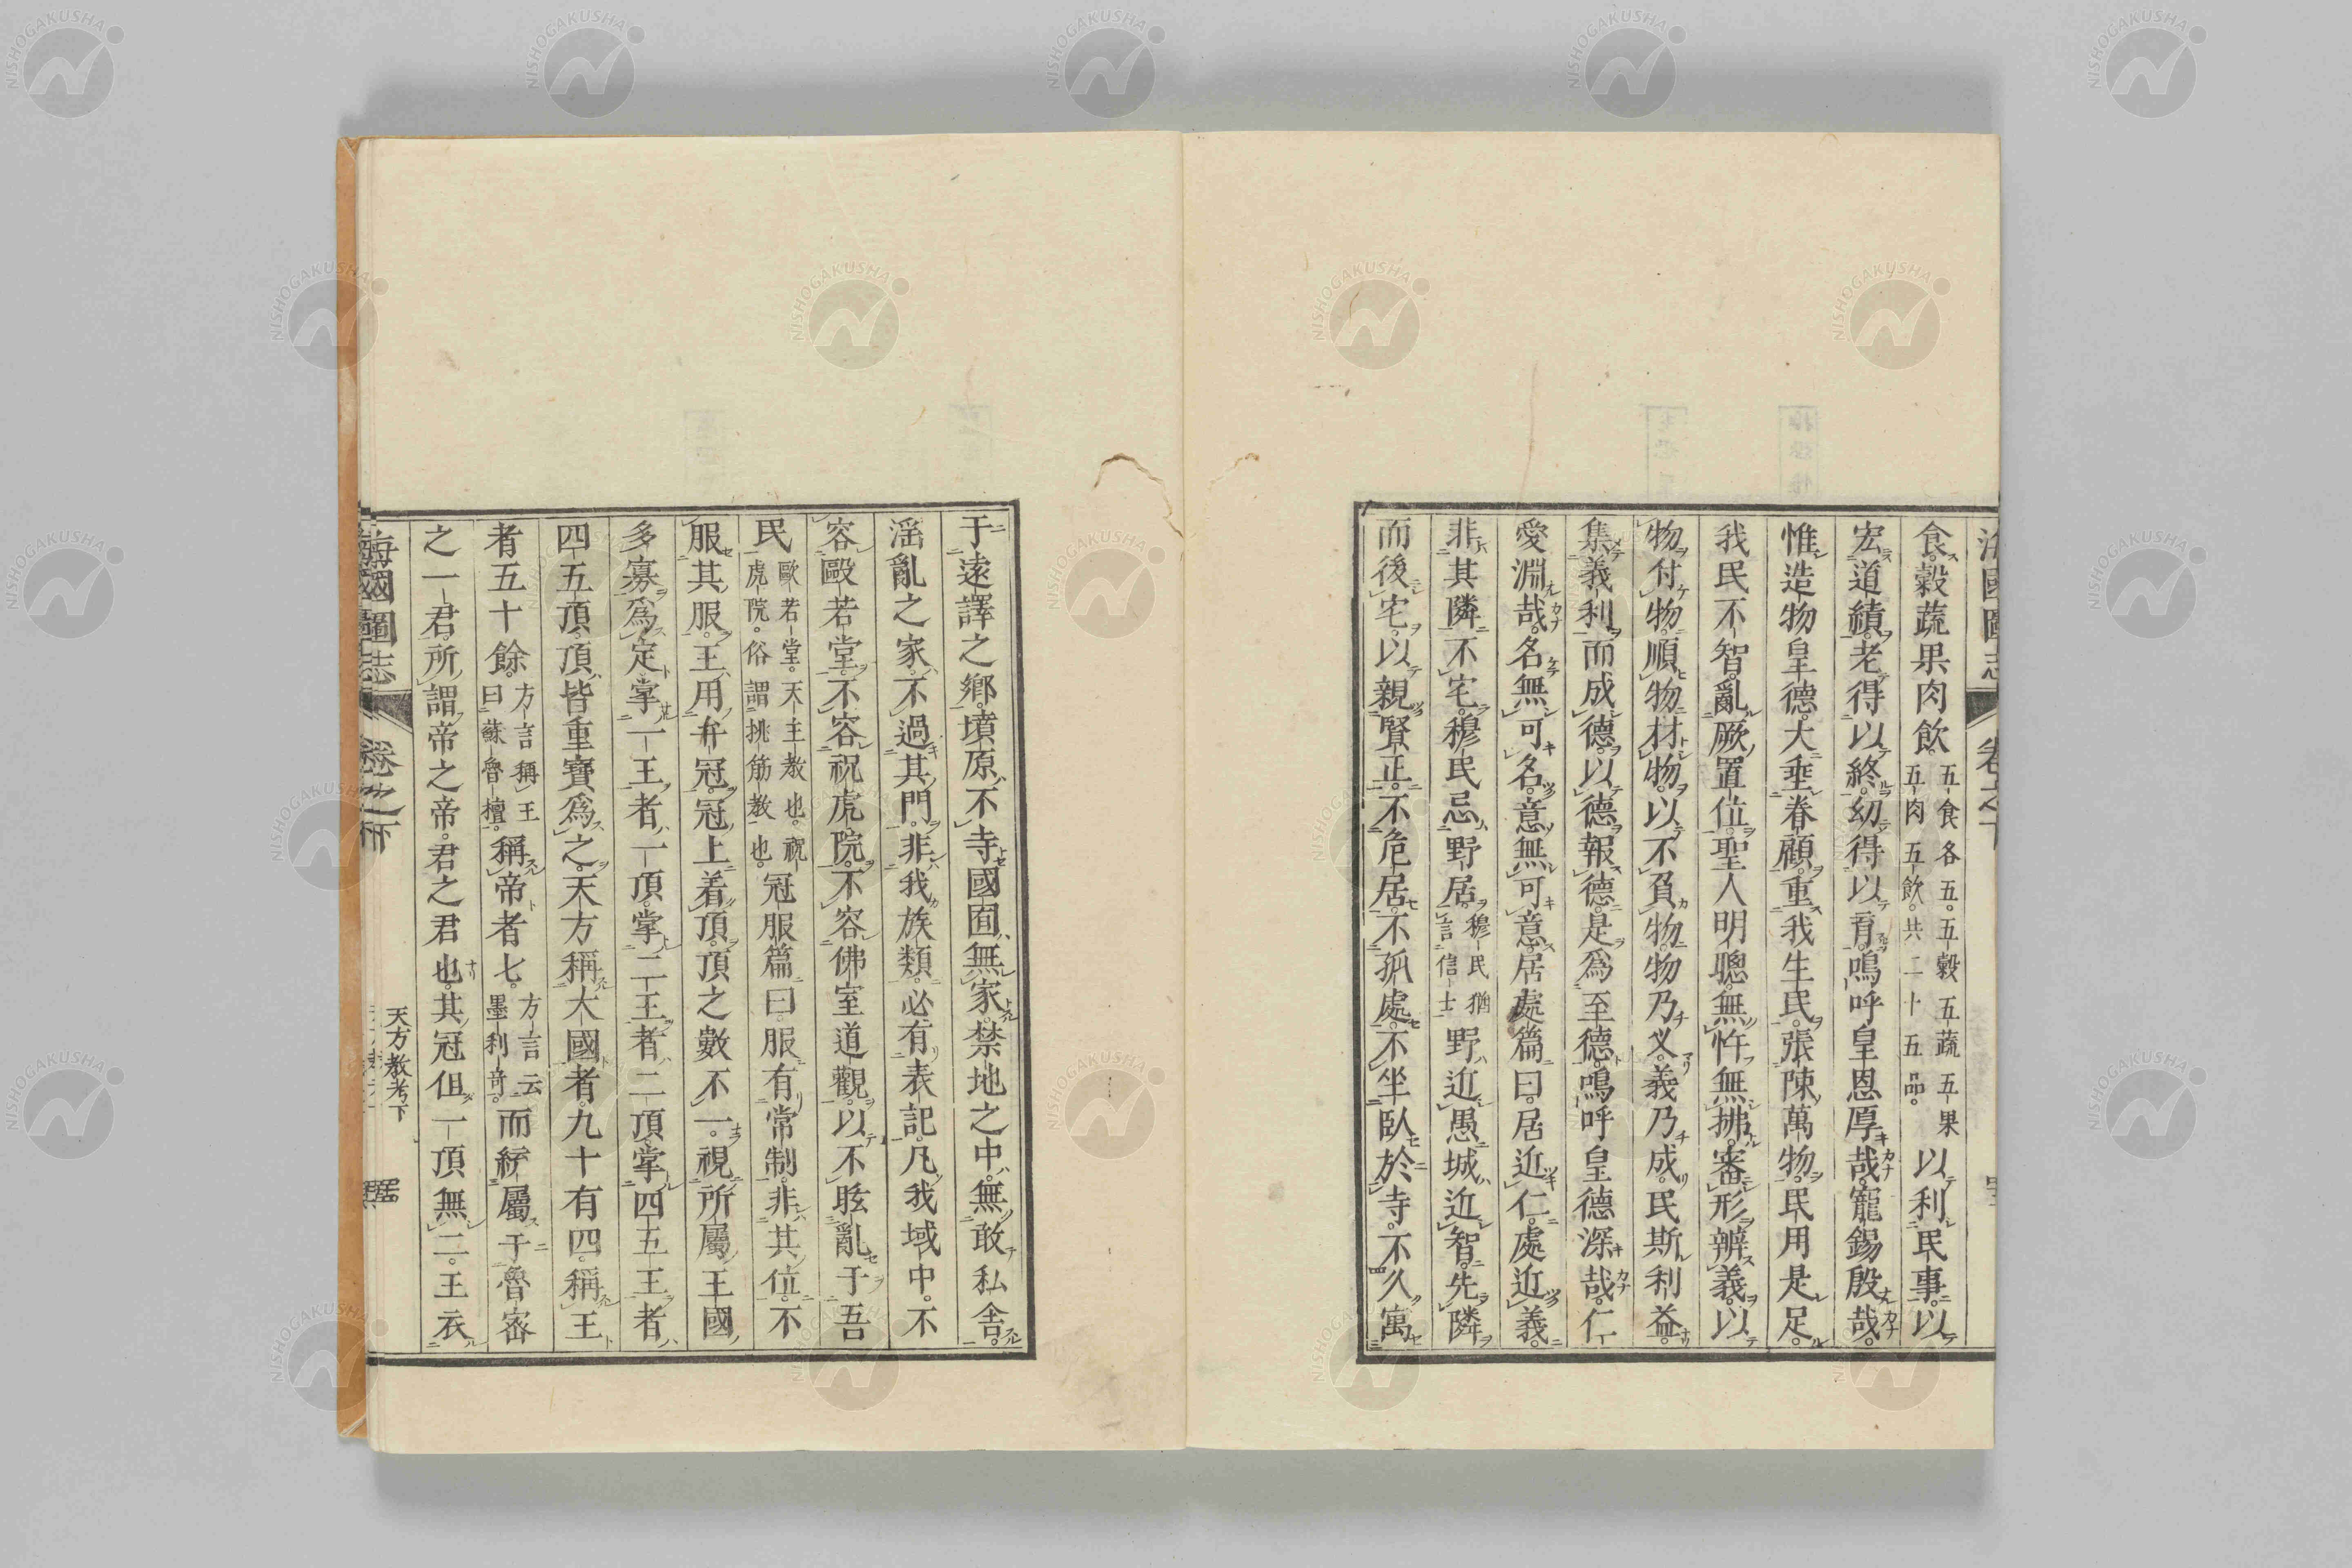 食。穀蔬果肉飲。五食各五。五穀五蔬五果五肉五飲。共二十五品。以利民事。以
宏道績。老得以終。幼得以育。嗚呼皇恩厚哉。寵錫殷哉。
惟造物皇德。大垂眷顧。重我生民。張陳萬物。民用是足。
我民不智。亂厥置位。聖人明聰。無忤無拂。審形辨義。以
物付物。順物材物。以不負物。物乃义。義乃成。民斯利益。
集義利而成德。以德報德。是爲至德。嗚呼皇德深哉。仁
愛淵哉。名無可名。意無可意。居處篇曰。居近仁。處近義。
非其隣不宅。穆民忌野居。穆民猶言信士野近愚。城近智。先隣
而後宅。以親賢正。不危居。不孤處。不坐臥於寺。不久寓
于遠譯之鄉。墳原不寺。國囿無家。禁地之中。無敢私舍。
滛亂之家。不過其門。非我族類。必有表記。凡我域中。不
容毆若堂。不容祝虎院。不容佛室道觀。以不眩亂于吾
民歐若堂。天主教也。祝虎院。俗謂挑筋教也。冠服篇曰。服有常制。非其位。不
服其服。王用弁冠。冠上着頂。頂之數不一。視所屬王國
多寡爲定。掌一王者。一頂。掌二王者。二頂。掌四五王者。
四五頂。頂皆重寶爲之。天方稱大國者。九十有四。稱王
者五十餘。方言稱王曰蘇魯檀。稱帝者七。方言云墨利奇。而統屬于魯密
之一君。所謂帝之帝。君之君也。其冠伹一頂無二。王衣
海國圖志 卷之下 天方教考下